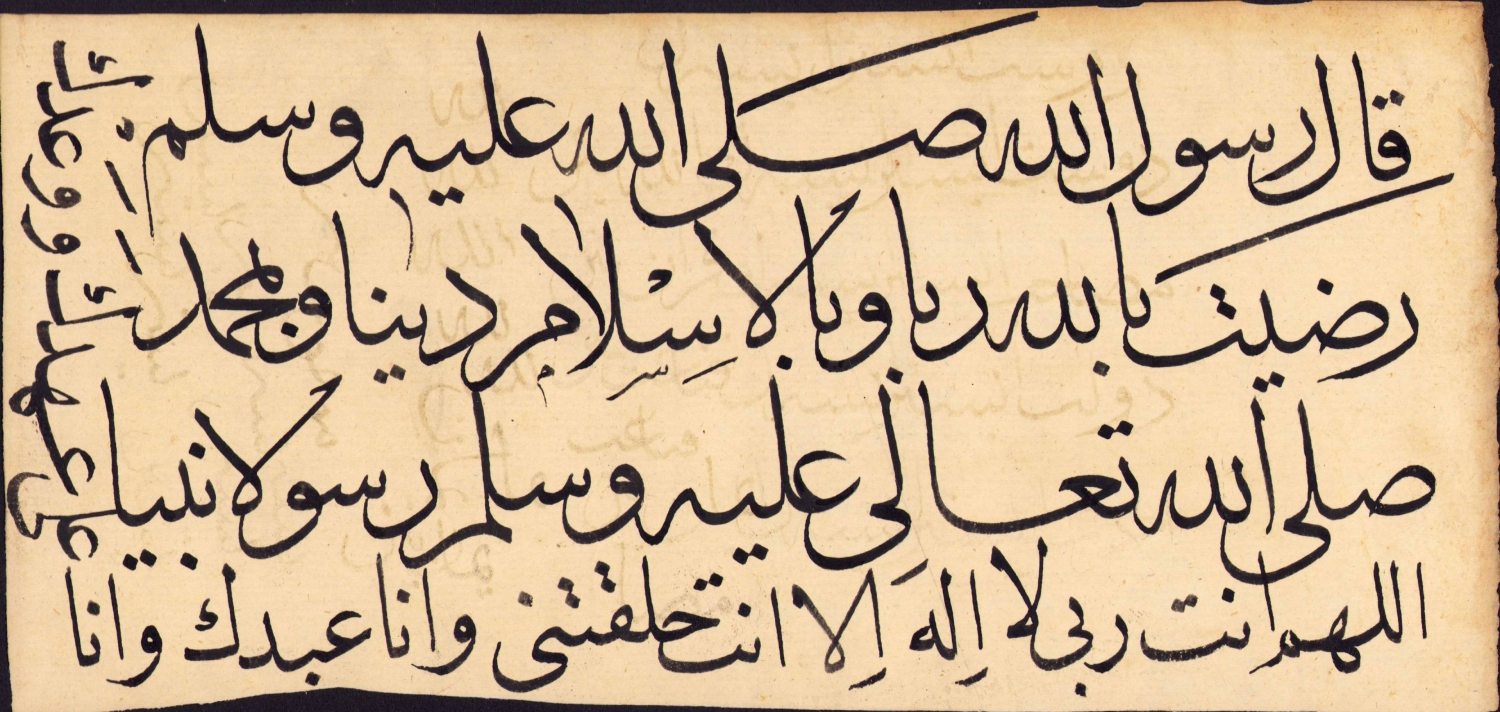 قال رسول الله صلى الله عليه وسلم
رضيت بالله ربا وبالاسلام دينا وبمحمد
صلى الله تعالى عليه وسلم رسولا نبيا
اللهم انت ربى لا اله الا انت خلقتنى وانا عبدك وانا
على عهدك ووعدك